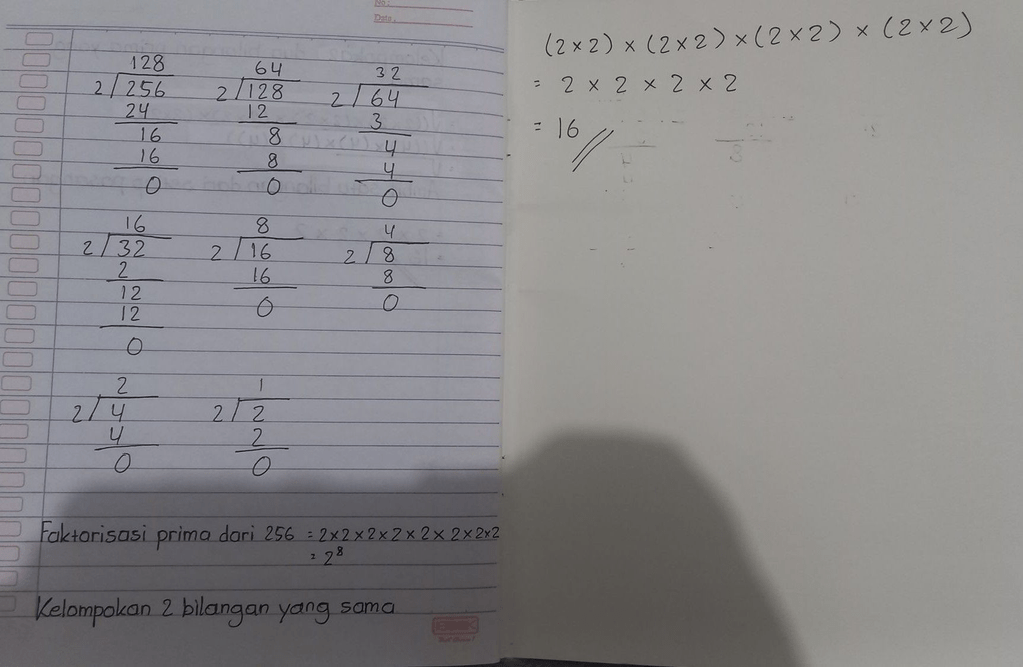 No:
Date:
128
2/256
24
16
16
0
64
2/128
12
8
8
0
32
2/64
3
4
4
0
16
2/32
2
12
12
0
8
2/16
16
0
4
2/8
8
0
2
2/4
4
0
1
2/2
2
0
Faktorisasi prima dari 256 = 2×2×2×2×2×2×2×2
= 2⁸
Kelompokan 2 bilangan yang sama
(2×2) × (2×2) × (2×2) × (2×2)
= 2 × 2 × 2 × 2
= 16 //